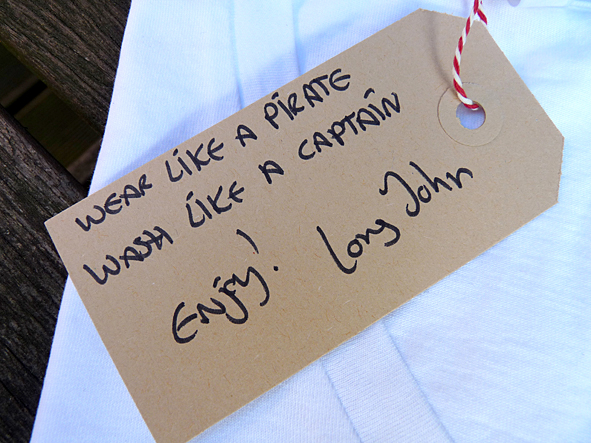 WEAR LIKE A PIRATE
WASH LIKE A CAPTAIN
ENJOY! Long John